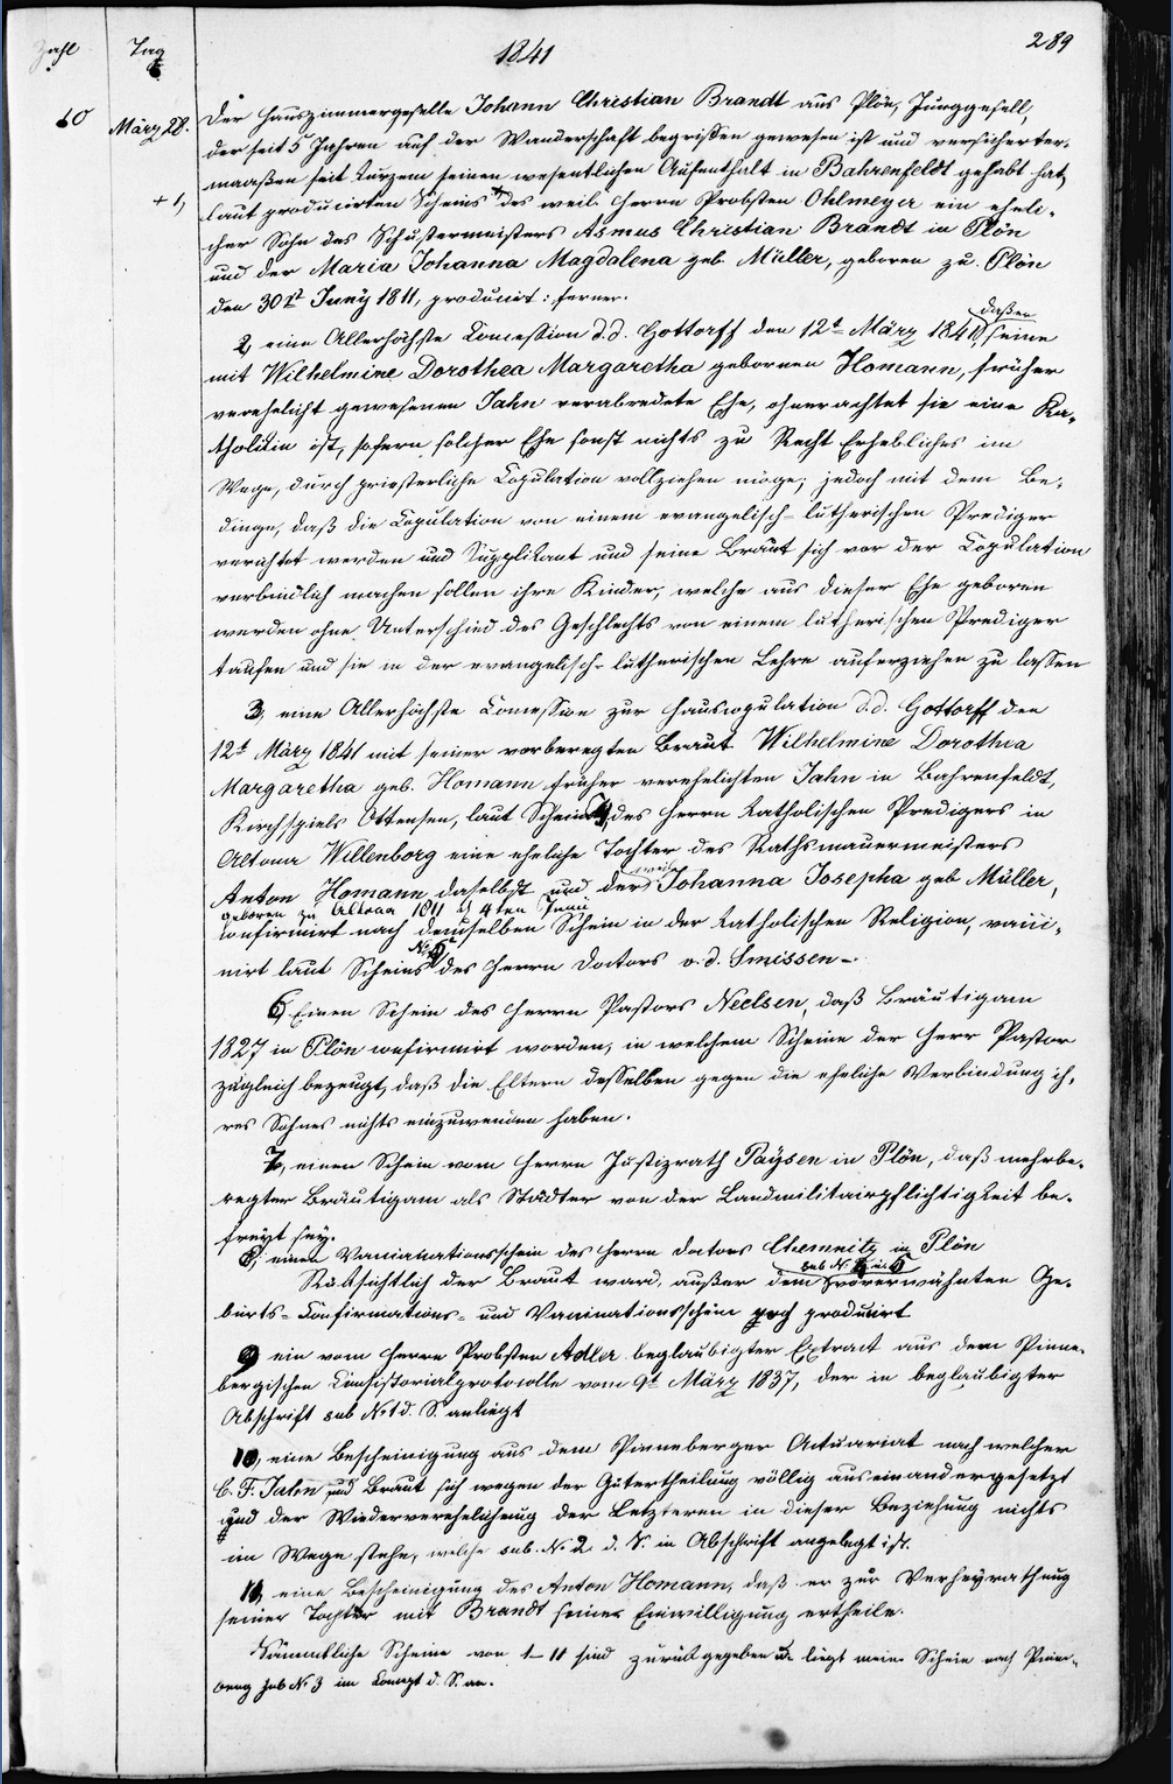 Zahl Tag 1841 289
10 März 28. Der Hauszimmergeselle Johann Christian Brandt aus Plön, Junggesell,
der seit 5 Jahren auf der Wanderschaft begriffen gewesen ist und versicherter-
maaßen seit Kurzem seinen wesentlichen Aufenthalt in Bahrenfeldt gehabt hat,
+ 1, laut producirten Scheins + des weil. Herrn Probsten Ohlmeyer ein eheli-
cher Sohn des Schustermeisters Asmus Christian Brandt in Plön
und der Maria Johanna Magdalena geb. Müller, geboren zu Plön
den 30st Juny 1811, producirt: ferner.
2, eine Allerhöchste Concession d. d. Gottorff den 12t März 1841, daß er seine
mit Wilhelmine Dorothea Margaretha gebornen Homann, früher
verehelicht gewesenen Jahn verabredete Ehe, ohnerachtet sie eine Ka-
tholikin ist, sofern solcher Ehe sonst nichts zu Recht Erhebliches im
Wege, durch priesterliche Copulation vollziehen möge; jedoch mit dem Be-
dinge, daß die Copulation von einem evangelisch-lutherischen Prediger
verichtet werden und Supplikant und seine Braut sich vor der Copulation
verbindlich machen sollen ihre Kinder, welche aus dieser Ehe geboren
werden ohne Unterschied des Geschlechts von einem lutherischen Prediger
taufen und sie in der evangelisch-lutherischen Lehre auferziehen zu lassen
3, eine Allerhöchste Concession zur Hauscopulation d. d. Gottorff den
12t März 1841 mit seiner vorberegten Braut Wilhelmine Dorothea
Margaretha geb. Homann früher verehelichten Jahn in Bahrenfeldt,
Kirchspiels Ottensen, laut Scheins 4, des Herrn katholischen Predigers in
Altona Willenborg eine eheliche Tochter des Rathsmauermeisters
Anton Homann daselbst und der weil. Johanna Josepha geb Müller,
geboren zu Altona 1811 d 4ten Junii
confirmirt nach demselben Schein in der katholischen Religion, vacci-
nirt laut Scheins No 5 des Herrn Doctors v. d. Smissen -
6, Einen Schein des Herrn Pastors Neelsen, daß Bräutigam
1827 in Plön confirmirt worden, in welchem Scheine der Herr Pastor
zugleich bezeugt, daß die Eltern desselben gegen die eheliche Verbindung ih-
res Sohnes nichts einzuwenden haben.
7, einen Schein vom Herrn Justizrath Paÿsen in Plön, daß mehrbe-
regter Bräutigam als Städter von der Landmilitairpflichtigkeit be-
freyt sey.
8, einen Vaccinationsschein des Herrn Doctors Chemnitz in Plön
Rücksichtlich der Braut ward, außer dem sub No 4 u. 5 vorerwähnten Ge-
burts- Confirmations- und Vaccinationsschein noch producirt
9 ein vom Herrn Probsten Adler beglaubigter Extract aus dem Pinne-
bergischen Consistorialprotocolle vom 9t März 1837, der in beglaubigter
Abschrift sub No 1 d. S. anliegt
10, eine Bescheinigung aus dem Pinneberger Actuariat nach welcher
C. F. Jahn und Braut sich wegen der Gütertheilung völlig auseinandergesetzt
und der Wiederverehelichung der Letzteren in dieser Beziehung nichts
im Wege stehe, welche sub. No. 2. d. S. in Abschrift angelegt ist.
11, eine Bescheinigung des Anton Homann, daß er zur Verheyrathung
seiner Tochter mit Brandt seine Einwilligung ertheile.
Sämmtliche Scheine von 1-11 sind zurück gegeben u. liegt mein Schein nach Pinne-
berg sub No 3 im Concept d. S. an.